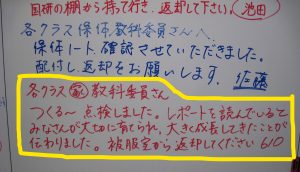 国研の棚から持って行き、返却して下さい。池田
各クラス保体教科委員さんへ
保体ノート確認させていただきました。
配付し返却をお願いします。佐藤
各クラス 家 教科委員さん
つくる〜点検しました。レポートを読んでいると
みなさんが大切に育てられ、大きく成長してきたことが
伝わりました。被服室から返却してください 6/0